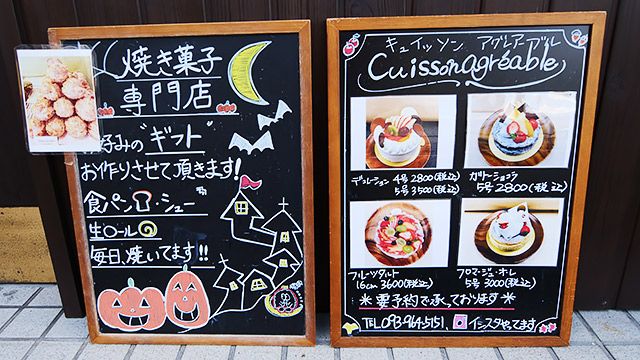 焼き菓子
専門店
お好みの"ギフト"
お作りさせて頂きます!
食パン・シュー
生ロール
毎日、焼いてます!!
キュイッソン アグレアーブル
Cuisson agréable
デコレーション 4号 2800(税込)
5号 3500(税込)
ガトーショコラ
5号 2800(税込)
フルーツタルト
16cm 3600(税込)
フロマージュ・オ・レ
5号 3000(税込)
※要予約で承っております※
TEL 093-964-5151 インスタやってます